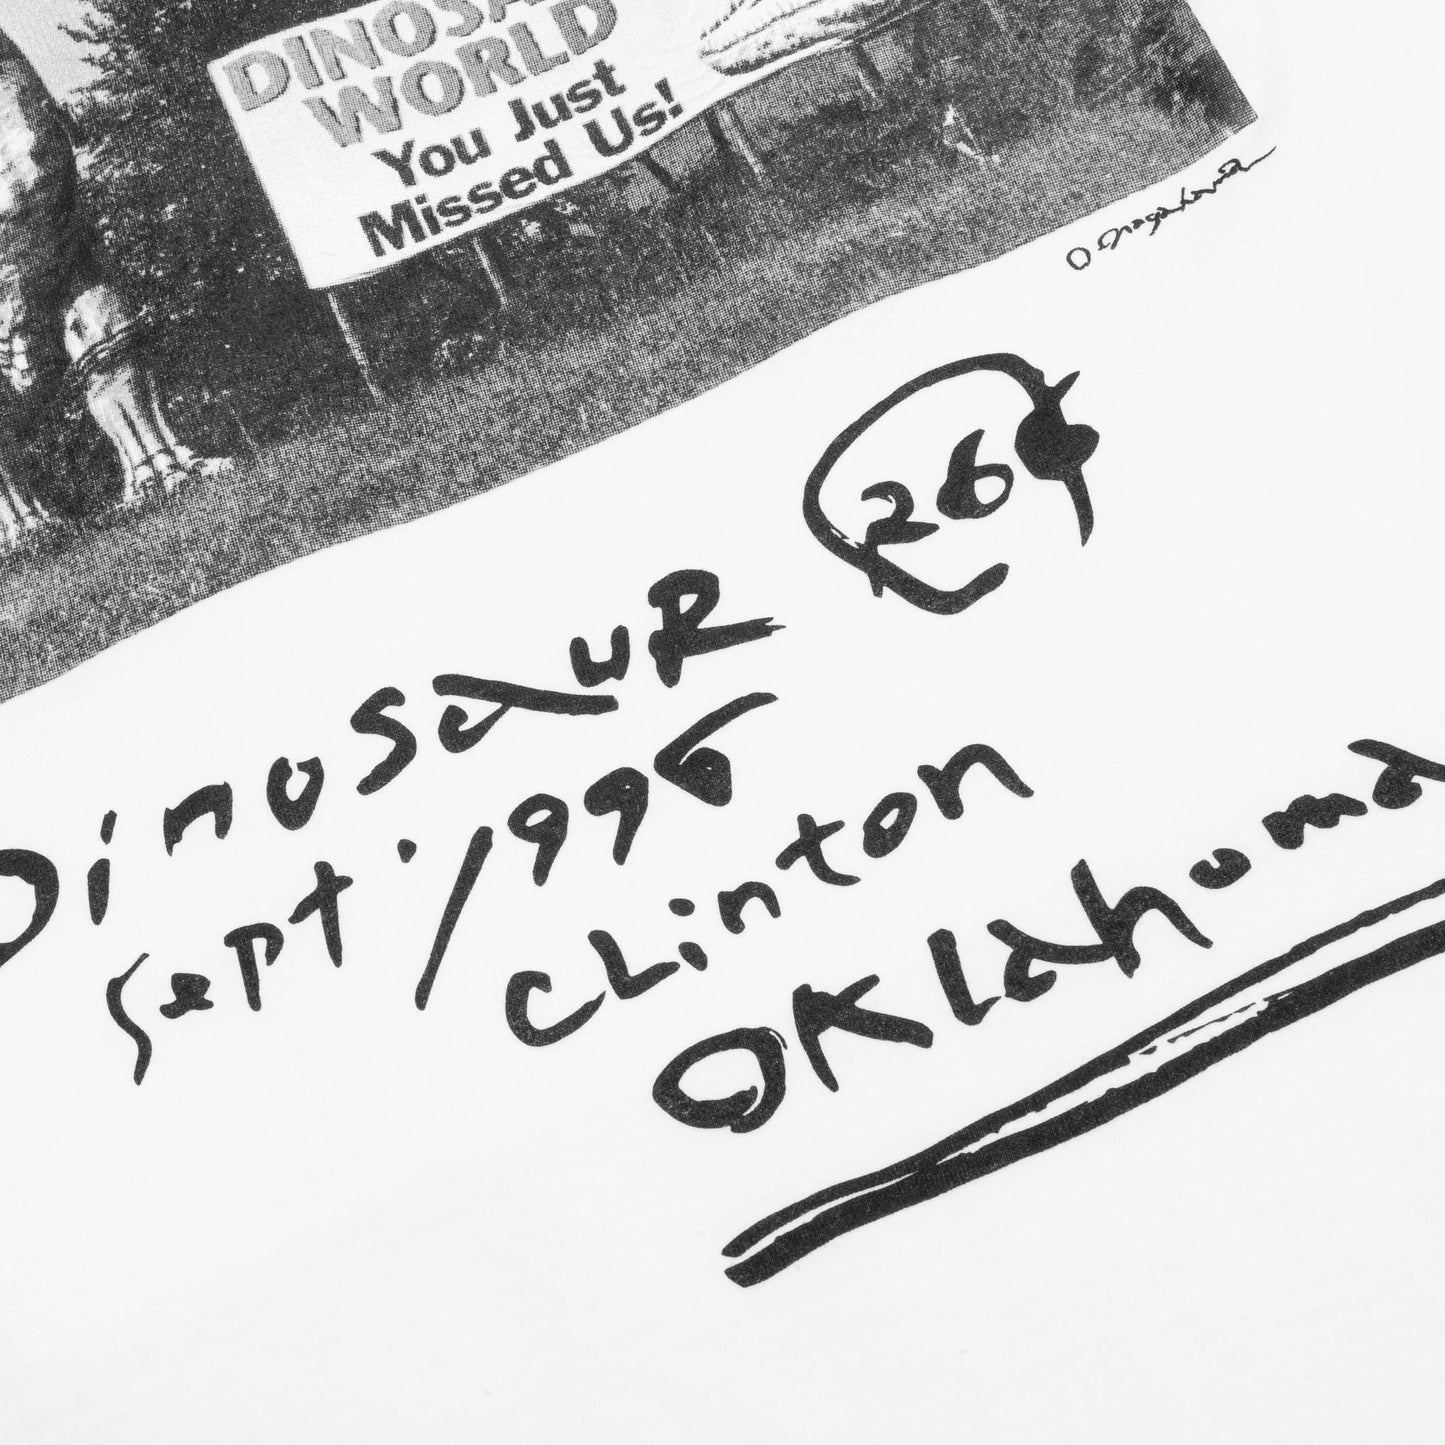 DINOSA
WORLD
You Just
Missed Us!
26
DinosauR
Sept. 1996
CLinton
OKLahoma